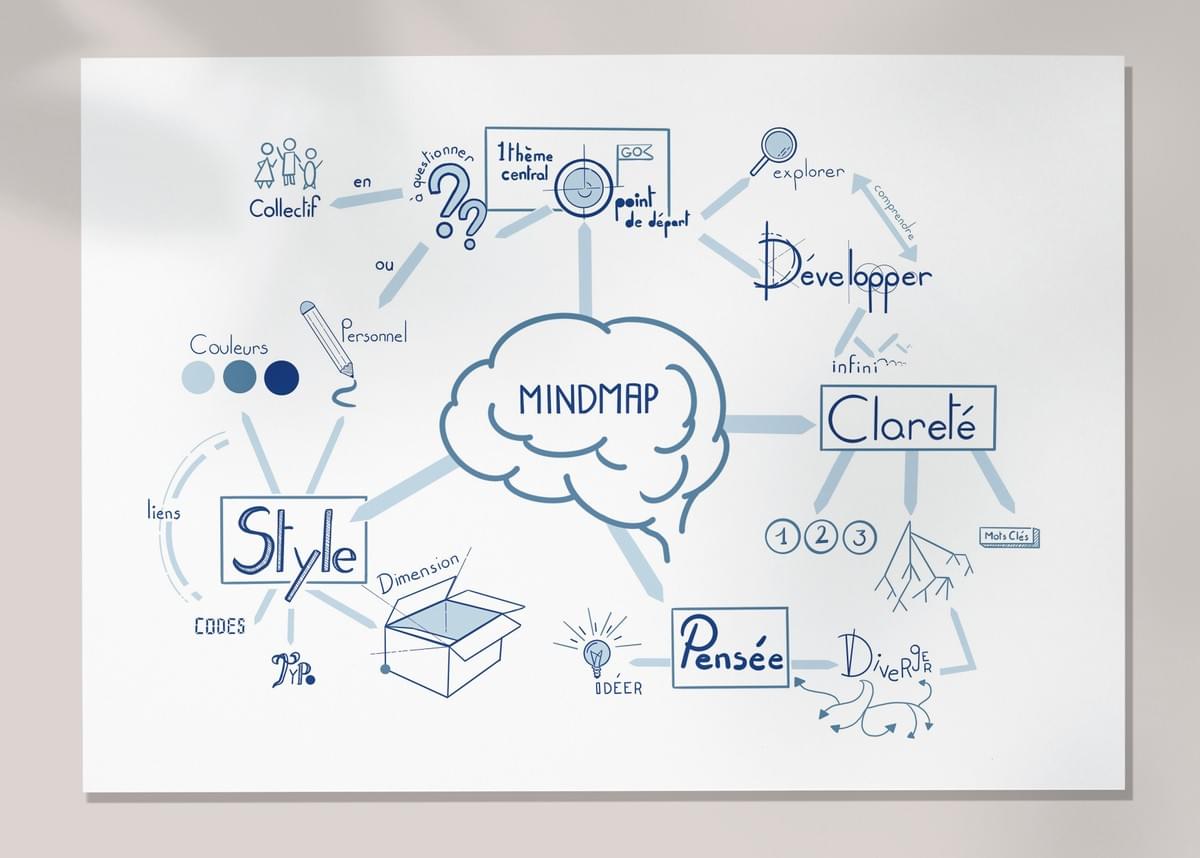 à questionner
1 thème
central
GO
point
de départ
explorer
en
Collectif
comprendre
ou
Développer
Personnel
Couleurs
infini
MINDMAP
Clareté
liens
Style
1 2 3
Mots Clés
Dimension
CODES
TYP.
Pensée
DIVERGER
IDÉER